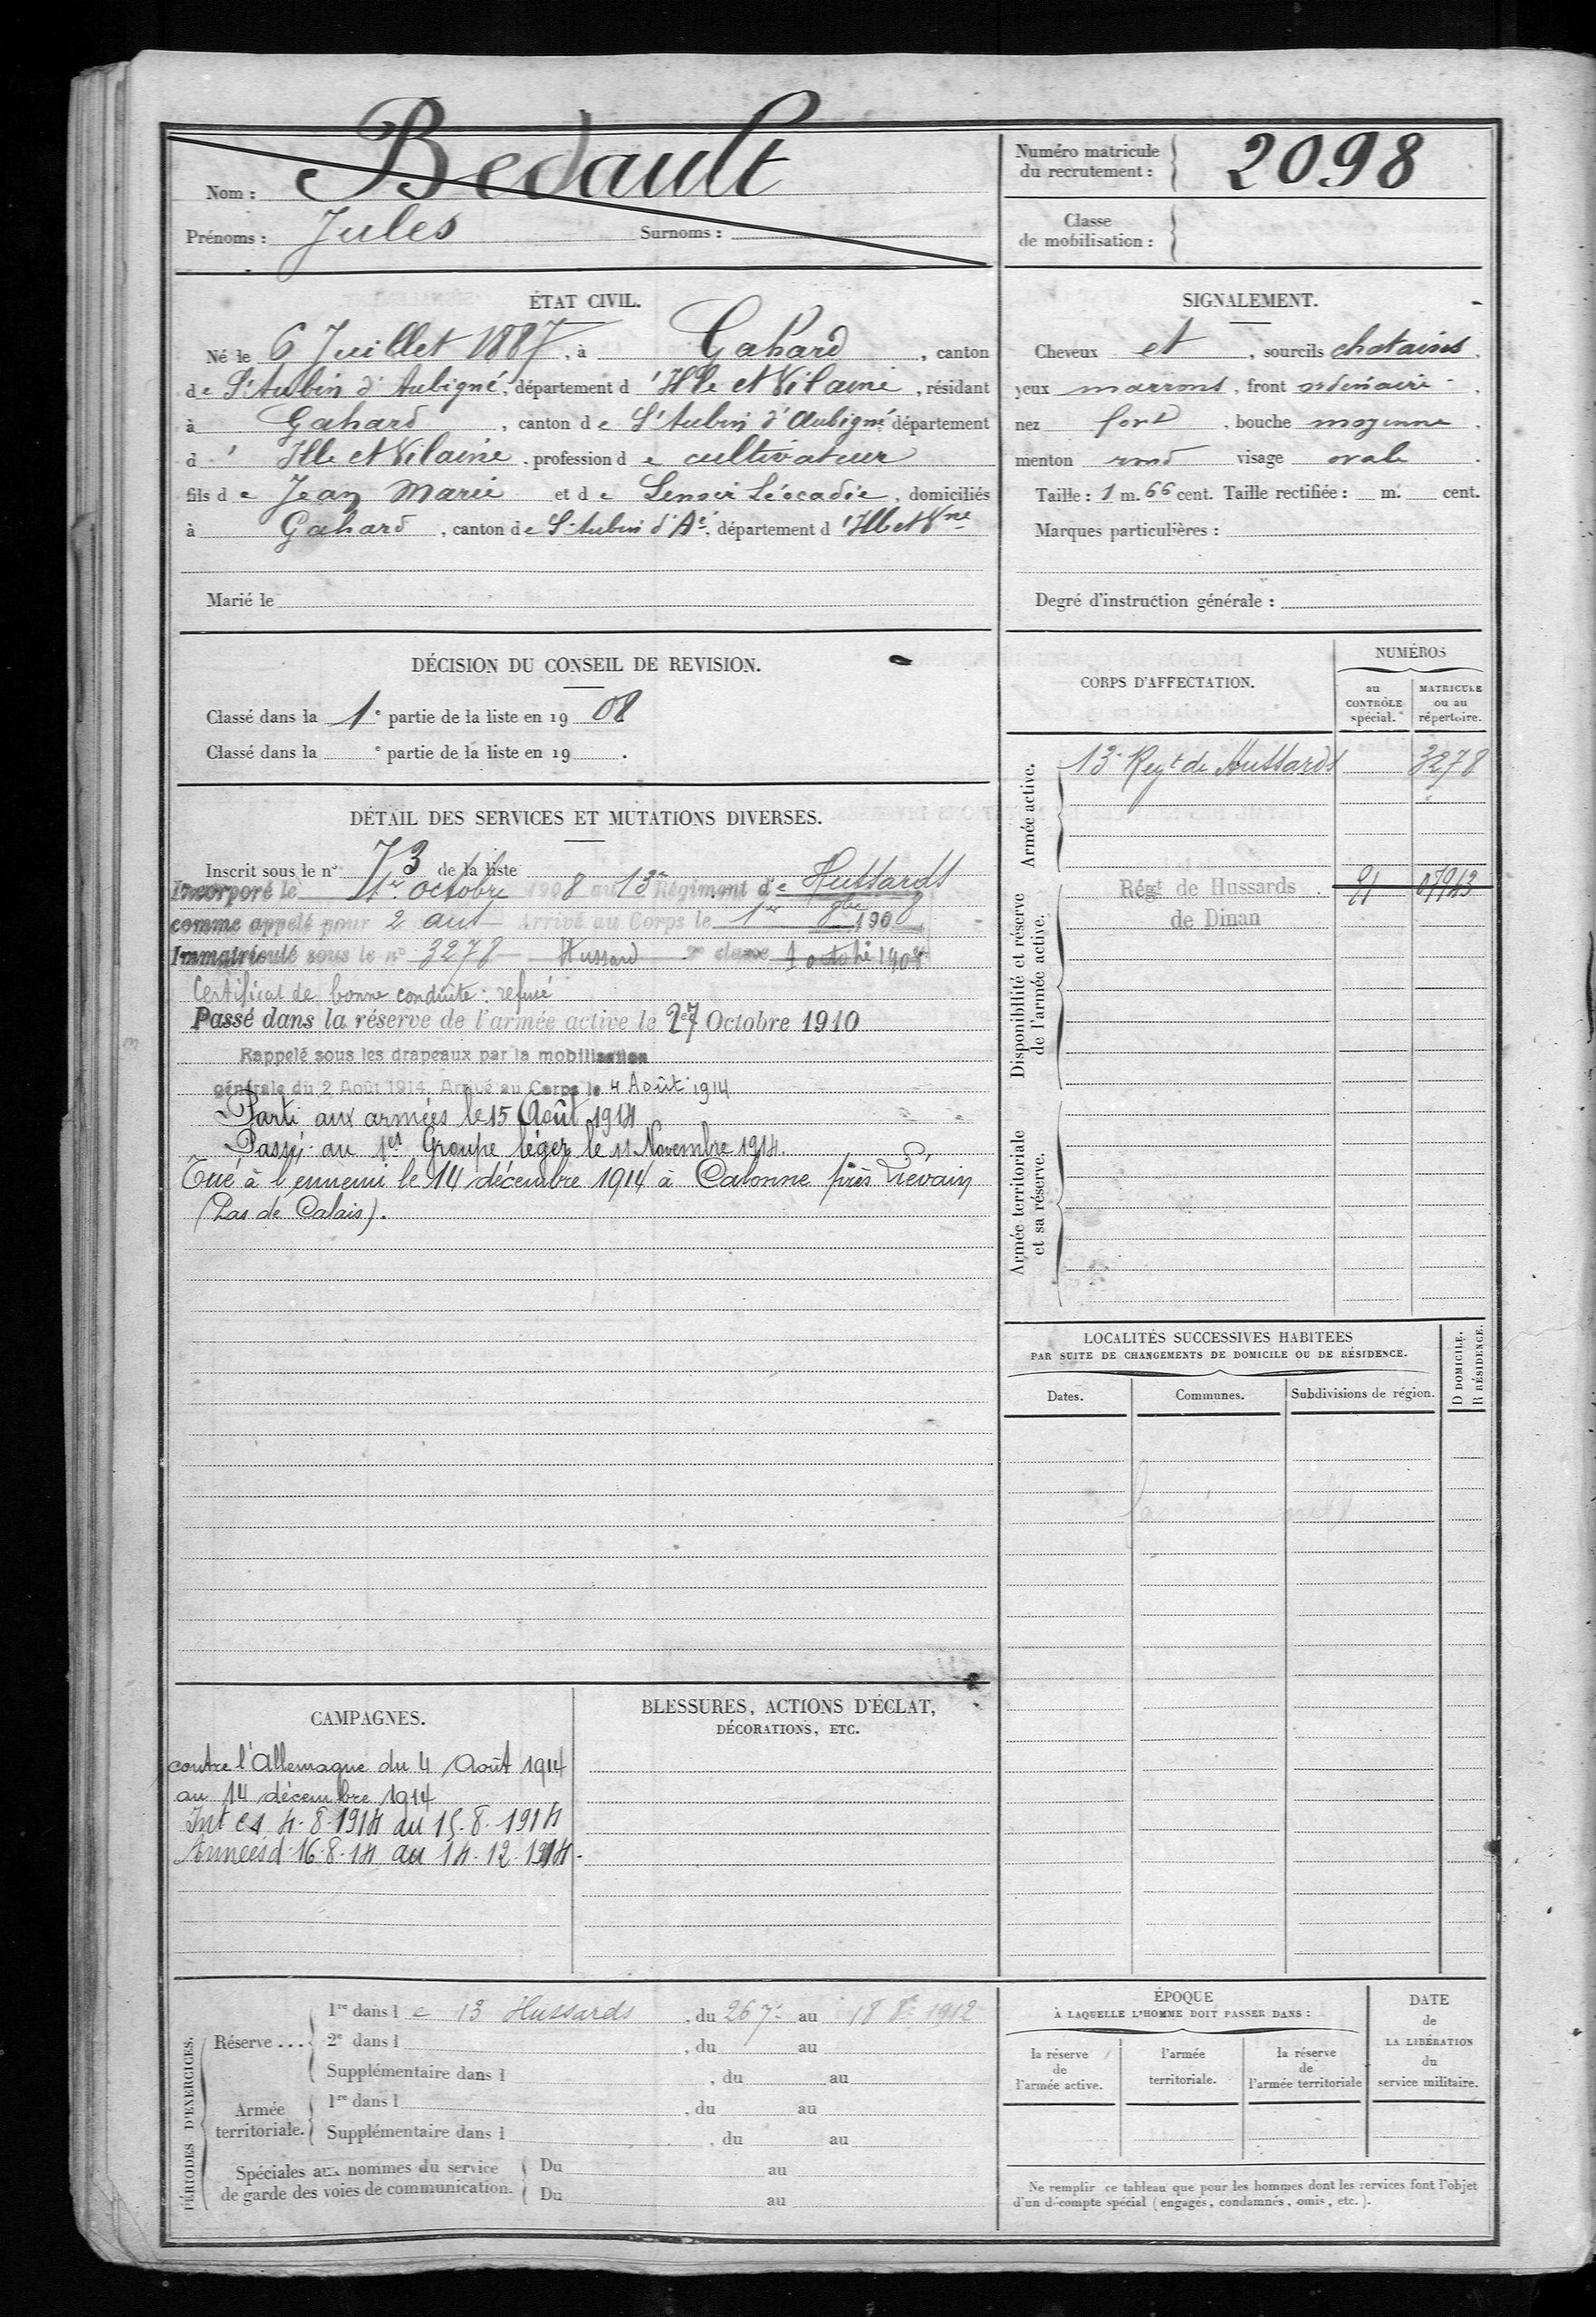 Nom : Bedault
Prénoms : Jules Surnoms :
Numéro matricule
du recrutement : 2098
Classe
de mobilisation :
ÉTAT CIVIL.
Né le 6 Juillet 1887, à Gahard, canton
de St Aubin d'Aubigné, département d'Ille et Vilaine, résidant
à Gahard, canton de St Aubin d'Aubigné département
d'Ille et Vilaine, profession de cultivateur
fils de Jean Marie et de Lenoir Léocadie, domiciliés
à Gahard, canton de St Aubin d'Aé, département d'Ill et Vne
Marié le
SIGNALEMENT.
Cheveux et, sourcils chatains,
yeux marrons, front ordinaire,
nez fort, bouche moyenne,
menton rond visage ovale.
Taille : 1 m. 66 cent. Taille rectifiée : m. cent.
Marques particulières :
Degré d'instruction générale :
DÉCISION DU CONSEIL DE REVISION.
Classé dans la 1e partie de la liste en 1908
Classé dans la e partie de la liste en 19 .
DÉTAIL DES SERVICES ET MUTATIONS DIVERSES.
Inscrit sous le n° 73 de la liste
Incorporé le 1er octobre 1908 au 13e Régiment de Hussards
comme appelé pour 2 ans Arrivé au Corps le 1er 8bre 1908
Immatriculé sous le n° 3278 Hussard 2e classe 1 octobre 1908
Certificat de bonne conduite : refusé
Passé dans la réserve de l'armée active le 27 Octobre 1910
Rappelé sous les drapeaux par la mobilisation
générale du 2 Août 1914. Arrivé au Corps le 4 Août 1914
Parti aux armées le 15 Août 1914
Passé au 1er Groupe léger le 11 Novembre 1914.
Tué à l'ennemi le 14 décembre 1914 à Calonne près Liévain
(Pas de Calais).
CORPS D'AFFECTATION.
NUMÉROS
au
CONTRÔLE
spécial.
MATRICULE
ou au
répertoire.
Armée active.
13e Regt de Hussards 3278
Disponibilité et réserve
de l'armée active.
Régt de Hussards
de Dinan
Armée territoriale
et sa réserve.
LOCALITÉS SUCCESSIVES HABITÉES
PAR SUITE DE CHANGEMENTS DE DOMICILE OU DE RÉSIDENCE.
Dates. Communes. Subdivisions de région.
D DOMICILE.
R RÉSIDENCE.
CAMPAGNES.
contre l'Allemagne du 4 Août 1914
au 14 décembre 1914
Int 4.8.1914 au 15.8.1914
Armées d 16.8.14 au 14.12.1914.
BLESSURES, ACTIONS D'ÉCLAT,
DÉCORATIONS, ETC.
PÉRIODES D'EXERCICES.
Réserve ...
1re dans le 13 Hussards, du 26 7e au 18 8e 1912
2e dans l , du au
Supplémentaire dans l , du au
Armée
territoriale.
1re dans l , du au
Supplémentaire dans l , du au
Spéciales aux hommes du service
de garde des voies de communication.
Du au
Du au
ÉPOQUE
À LAQUELLE L'HOMME DOIT PASSER DANS :
la réserve
de
l'armée active.
l'armée
territoriale.
la réserve
de
l'armée territoriale
DATE
de
LA LIBÉRATION
du
service militaire.
Ne remplir ce tableau que pour les hommes dont les services font l'objet
d'un décompte spécial (engagés, condamnés, omis, etc.).